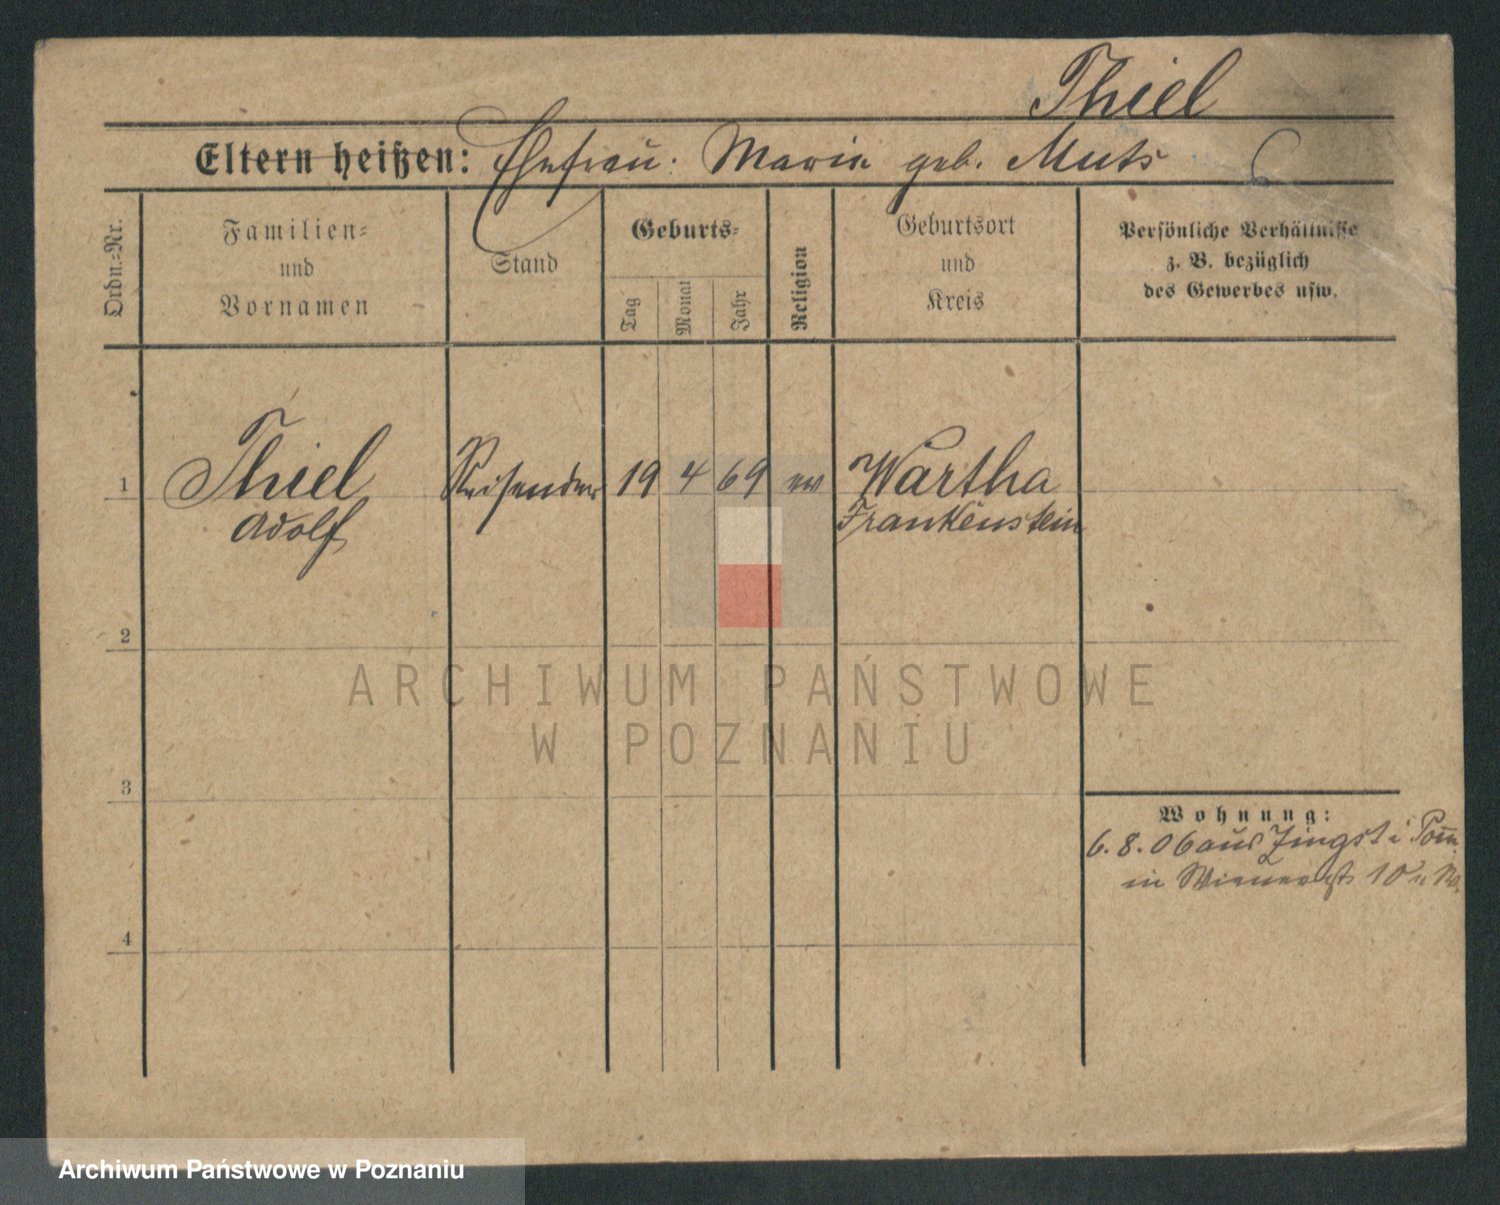 Thiel
Eltern heißen: Ehefrau: Maria geb. Muts
Ordn.-Nr.
Familien-
und
Vornamen
Stand
Geburts-
Tag
Monat
Jahr
Religion
Geburtsort
und
Kreis
Persönliche Verhältnisse
z. B. bezüglich
des Gewerbes usw.
1 Thiel Reisender 19 4 69 ev Wartha
Adolf Frankenstein
2
ARCHIWUM PAŃSTWOWE
W POZNANIU
3
Wohnung:
6. 8. 06 aus Zingst i Pom.
in Wienerstr 10
4
Archiwum Państwowe w Poznaniu